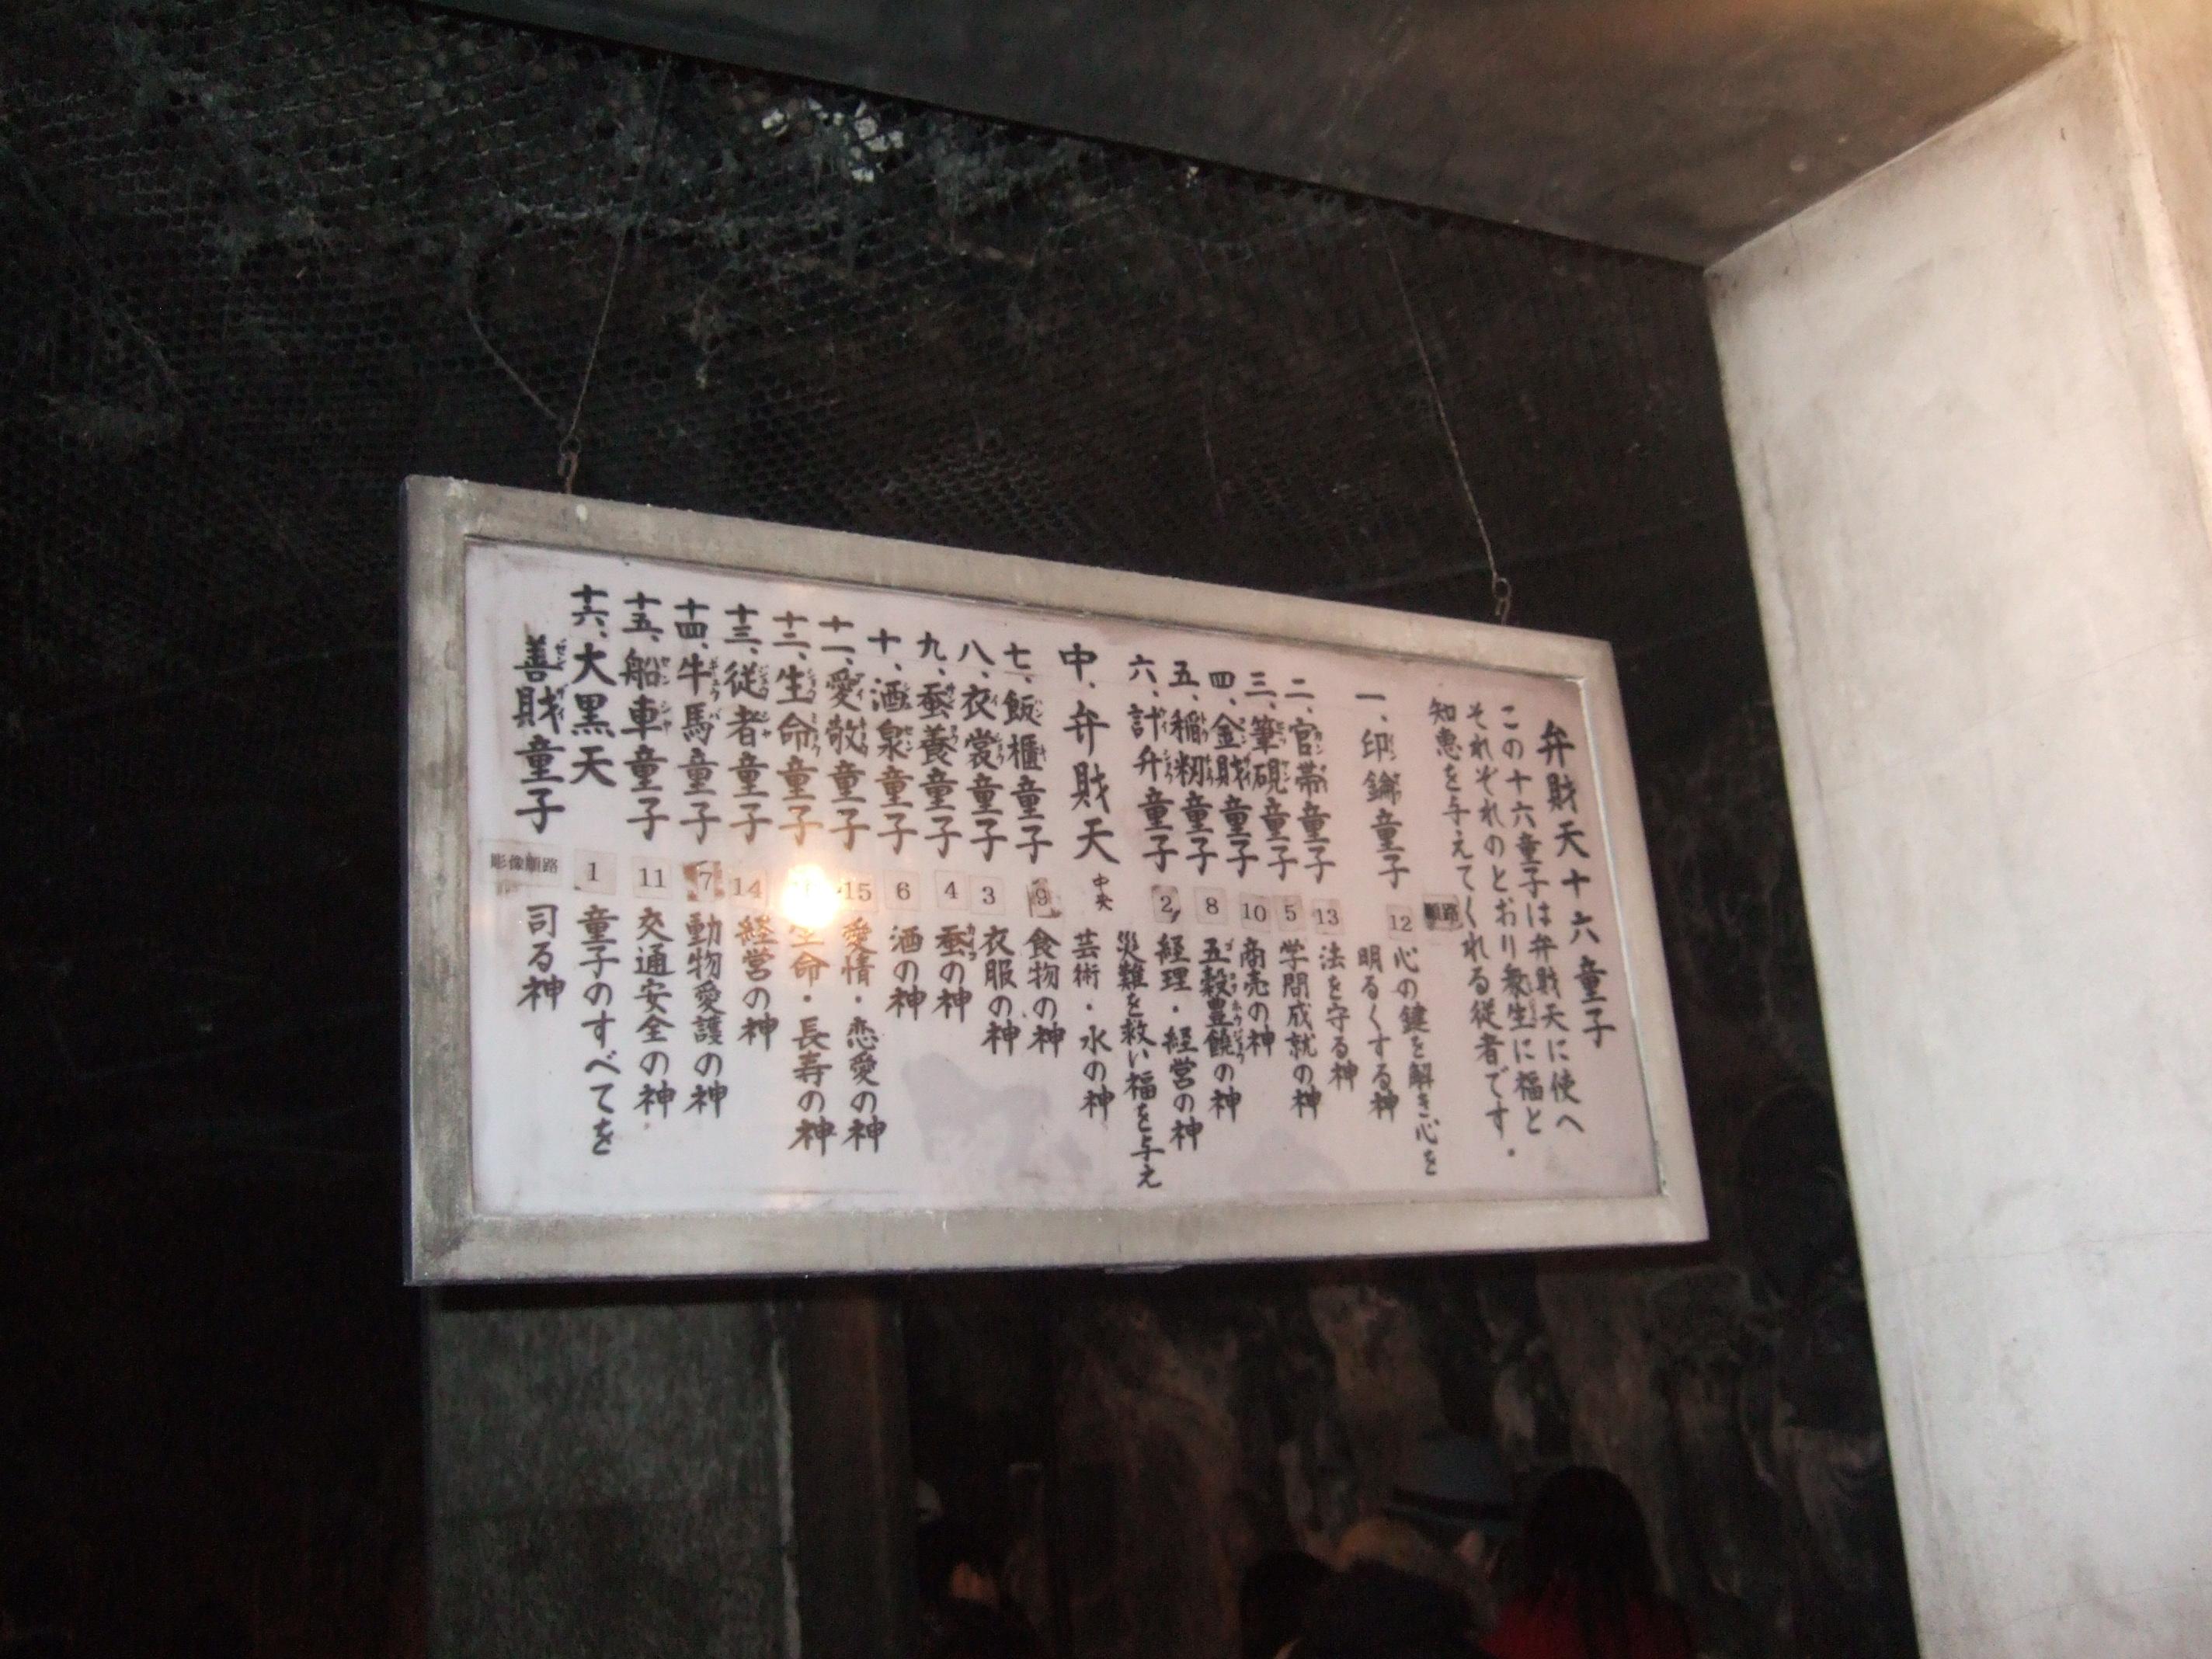 弁財天十六童子
この十六童子は弁財天に使へ
それぞれのとおり衆生に福と
知恵を与えてくれる従者です.
順路
一、印鑰童子 12 心の鍵を解き心を
明るくする神
二、官帯童子 13 法を守る神
三、筆硯童子 5 学問成就の神
四、金財童子 10 商売の神
五、稲籾童子 8 五穀豊饒の神
六、計升童子 2 経理・経営の神
災難を救い福を与え
中、弁財天 中央 芸術・水の神
七、飯櫃童子 9 食物の神
八、衣裳童子 3 衣服の神
九、蚕養童子 4 蚕の神
十、酒泉童子 6 酒の神
十一、愛敬童子 15 愛情・恋愛の神
十二、生命童子 生命・長寿の神
十三、従者童子 14 経営の神
十四、牛馬童子 7 動物愛護の神
十五、船車童子 11 交通安全の神
十六、大黒天 1 童子のすべてを
善財童子 彫像順路 司る神